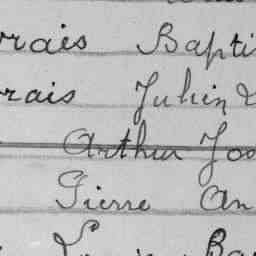 rais Bapti
rais Julien
Arthur Jos
Pierre An